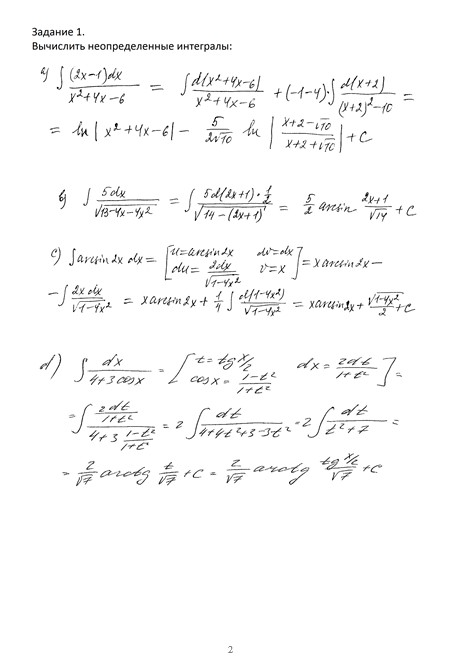 Задание 1.
Вычислить неопределенные интегралы:
a) ∫ (2x-1)dx / (x²+4x-6) = ∫ d(x²+4x-6) / (x²+4x-6) + (-1-4)·∫ d(x+2) / ((x+2)²-10) =
= ln|x²+4x-6| - 5/(2√10) ln |(x+2-√10)/(x+2+√10)| + C
b) ∫ 5dx / √(13-4x-4x²) = ∫ 5d(2x+1)·½ / √(14-(2x+1)²) = 5/2 arcsin (2x+1)/√14 + C
c) ∫ arcsin2x dx = [u=arcsin2x dv=dx du= 2dx/√(1-4x²) v=x] = x arcsin2x -
- ∫ 2xdx/√(1-4x²) = x arcsin2x + 1/4 ∫ d(1-4x²)/√(1-4x²) = x arcsin2x + √(1-4x²)/2 + C
d) ∫ dx/(4+3cosx) = [t=tg x/2 cosx = (1-t²)/(1+t²) dx = 2dt/(1+t²)] =
= ∫ (2dt/(1+t²)) / (4+3 (1-t²)/(1+t²)) = 2 ∫ dt/(4+4t²+3-3t²) = 2 ∫ dt/(t²+7) =
= 2/√7 arctg t/√7 + C = 2/√7 arctg (tg x/2)/√7 + C
2